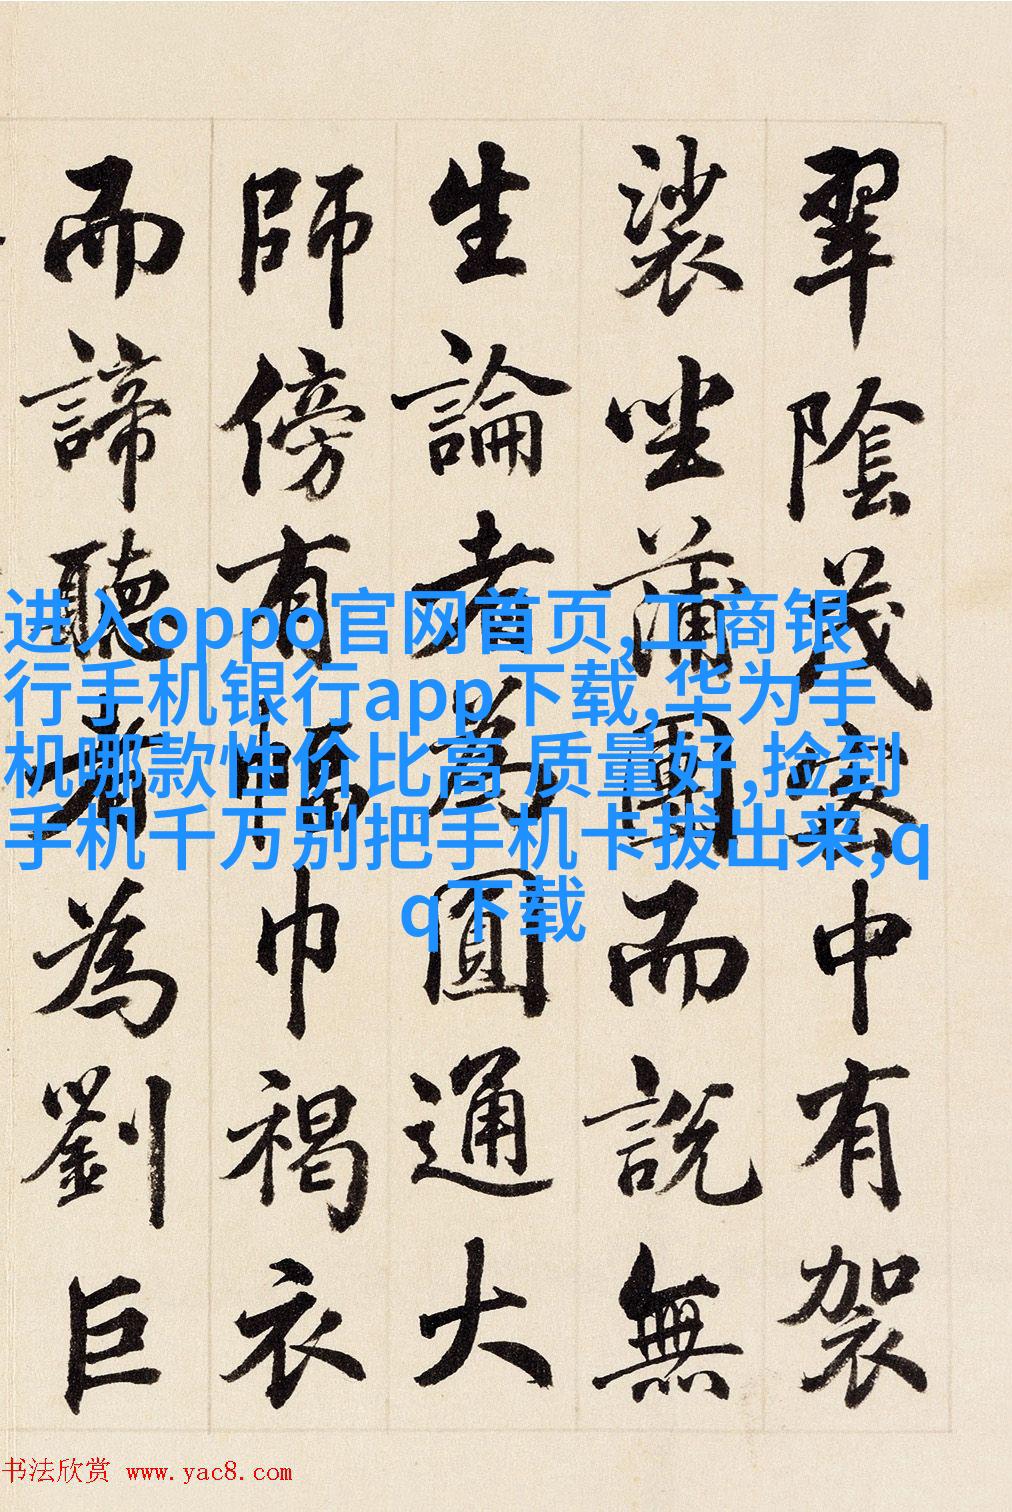 翠陰茂密中有袈
裟坐蒲團而說無
生論者為圓通大
師傍有幅巾褐衣
而諦聽者為劉巨
进入oppo官网首页,工商银
行手机银行app下载,华为手
机哪款性价比高 质量好,捡到
手机千万别把手机卡拔出来,q
q下载
书法欣赏 www.yac8.com